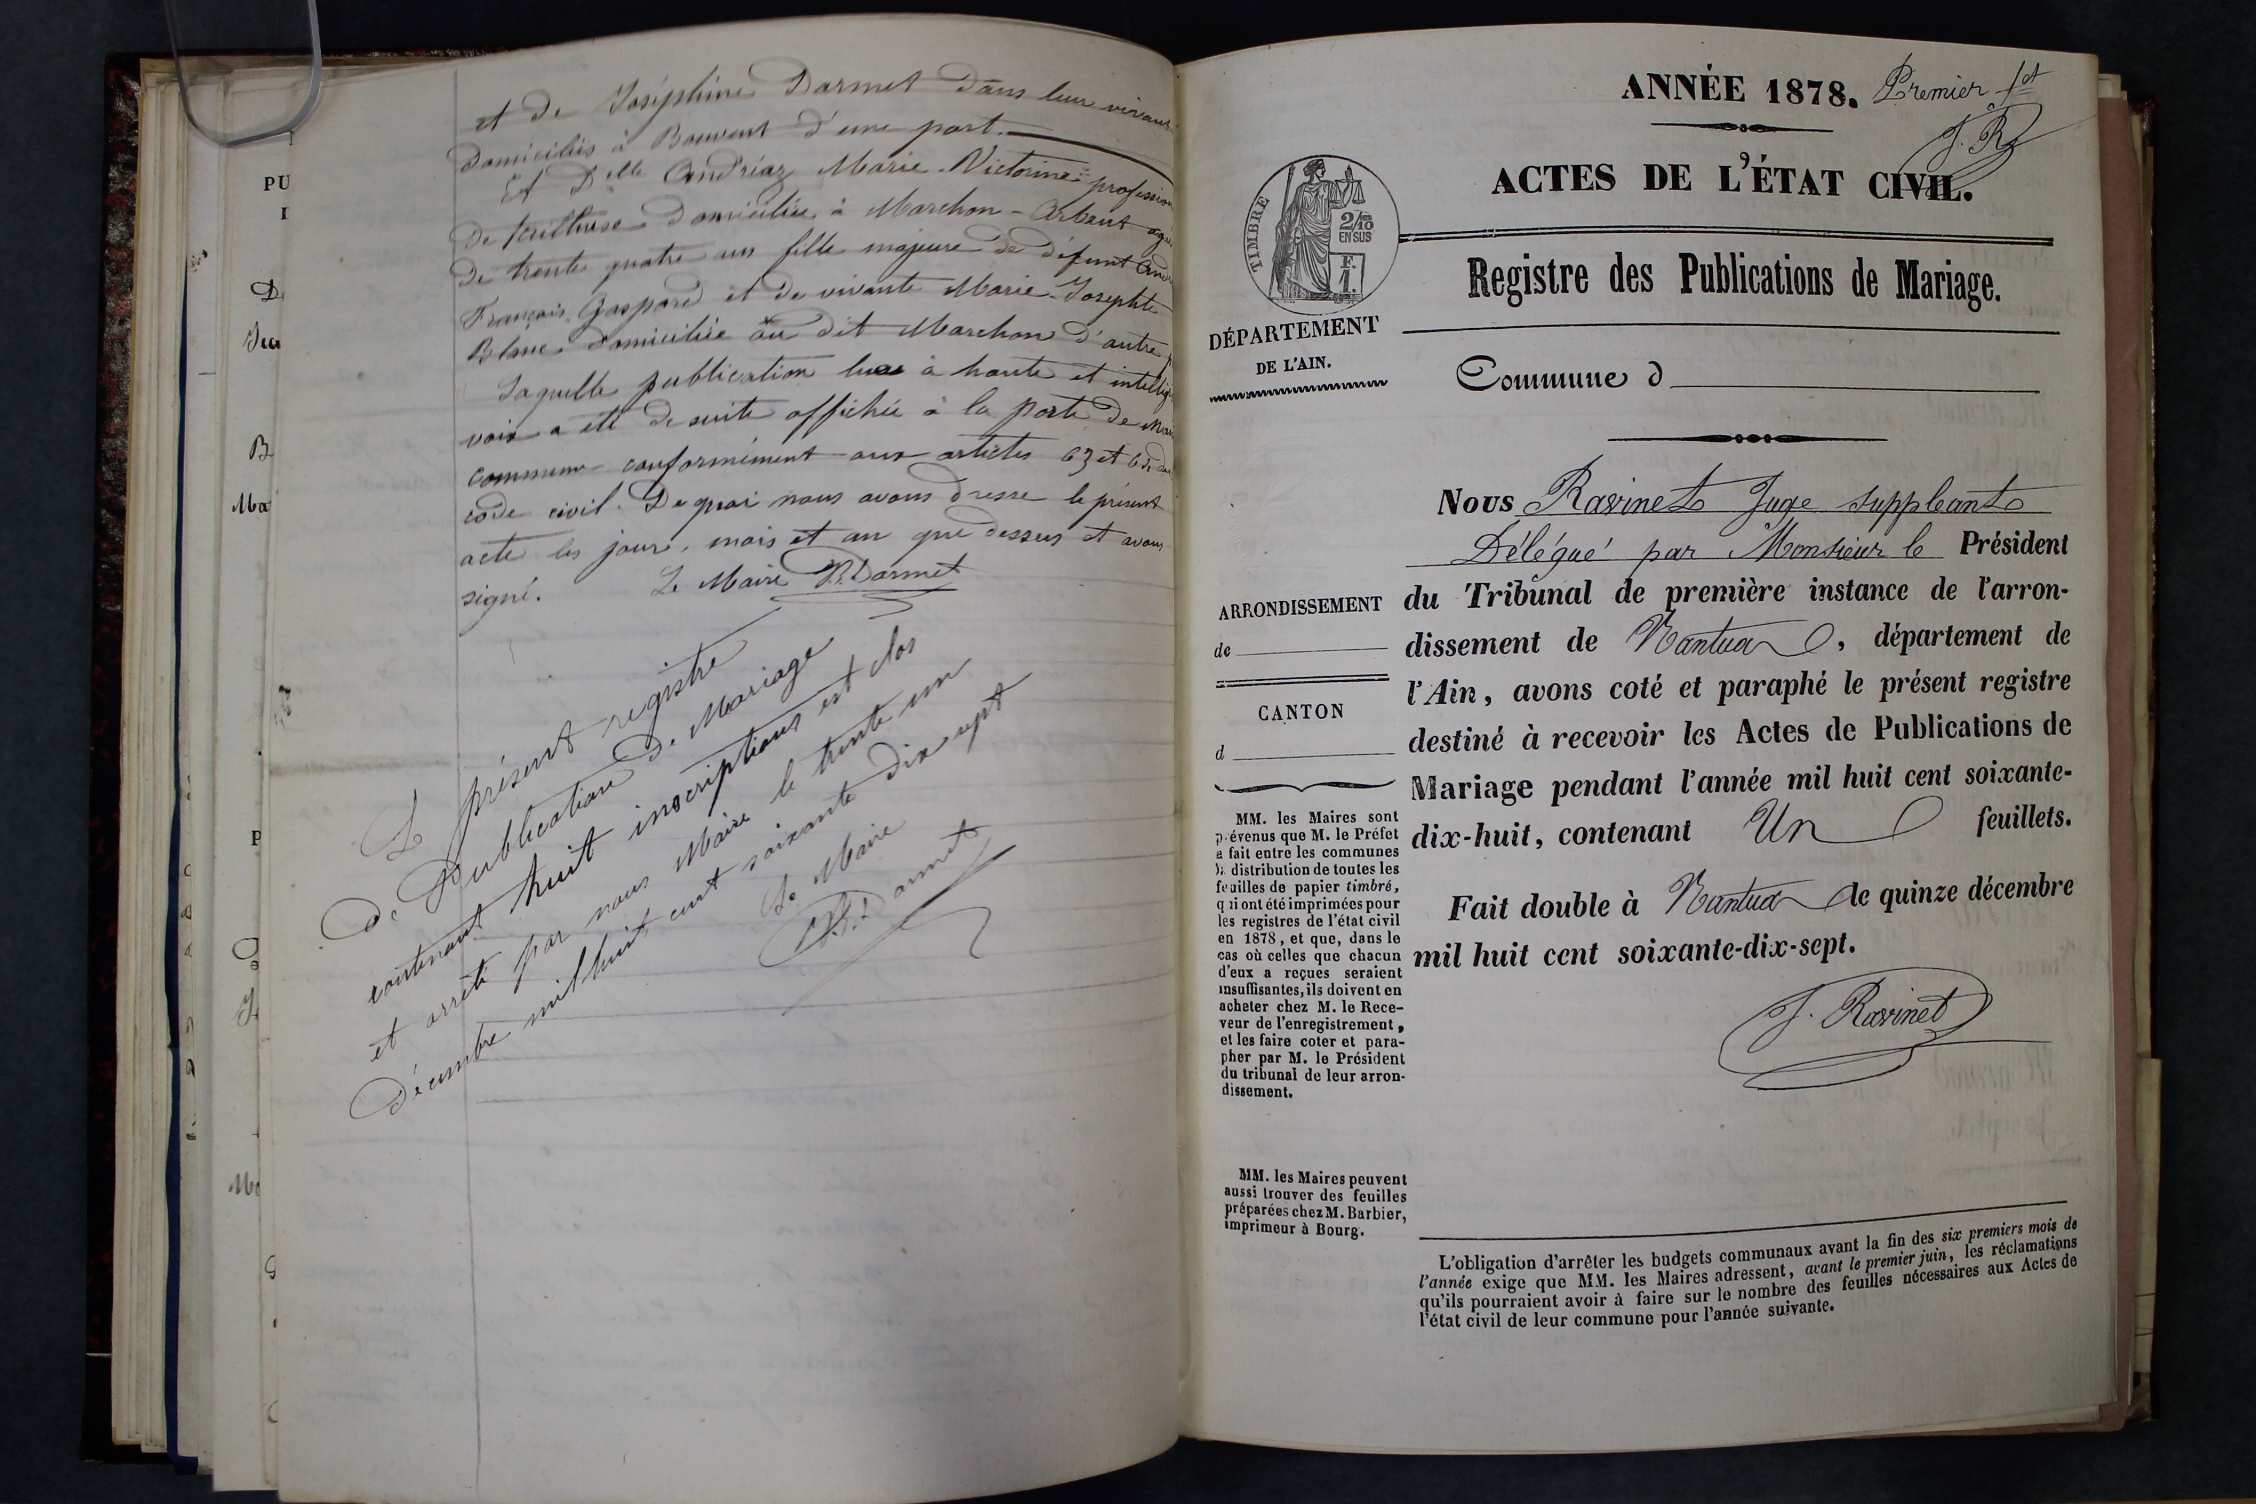 et de Joséphine Darmet dans leur vivant
domiciliés à Bouvent d'une part.
Et Dlle Andréaz Marie-Victorine profession
de tailleuse domiciliée à Marchon-Arbent agée
de trente quatre ans fille majeure de défunt
François Gaspard et de vivante Marie-Josephte
Blanc domiciliée au dit Marchon d'autre
Laquelle publication lue à haute et intelligi
voix a été de suite affichée à la porte de
commune conformément aux articles 63 et
code civil. De quoi nous avons dressé le présent
acte les jour, mois et an que dessus et avons
signé. Le Maire Darmet
Le présent registre
de Publication de Mariage
contenant huit inscriptions est clos
et arrêté par nous Maire le trente un
décembre mil huit cent soixante dix sept
Le Maire
Darmet
PU
Ma
B
ANNÉE 1878. Premier fet
J. R
ACTES DE L'ÉTAT CIVIL.
TIMBRE
2/10
EN SUS
F.
1.
Registre des Publications de Mariage.
DÉPARTEMENT
DE L'AIN.
Commune d
Nous Ravinet Juge suppléant
Délégué par Monsieur le Président
du Tribunal de première instance de l'arron-
dissement de Nantua, département de
l'Ain, avons coté et paraphé le présent registre
destiné à recevoir les Actes de Publications de
Mariage pendant l'année mil huit cent soixante-
dix-huit, contenant Un feuillets.
Fait double à Nantua le quinze décembre
mil huit cent soixante-dix-sept.
J. Ravinet
ARRONDISSEMENT
de
CANTON
d
MM. les Maires sont
prévenus que M. le Préfet
a fait entre les communes
la distribution de toutes les
feuilles de papier timbré,
qui ont été imprimées pour
les registres de l'état civil
en 1878, et que, dans le
cas où celles que chacun
d'eux a reçues seraient
insuffisantes, ils doivent en
acheter chez M. le Rece-
veur de l'enregistrement,
et les faire coter et para-
pher par M. le Président
du tribunal de leur arron-
dissement.
MM. les Maires peuvent
aussi trouver des feuilles
préparées chez M. Barbier,
imprimeur à Bourg.
L'obligation d'arrêter les budgets communaux avant la fin des six premiers mois de
l'année exige que MM. les Maires adressent, avant le premier juin, les réclamations
qu'ils pourraient avoir à faire sur le nombre des feuilles nécessaires aux Actes de
l'état civil de leur commune pour l'année suivante.